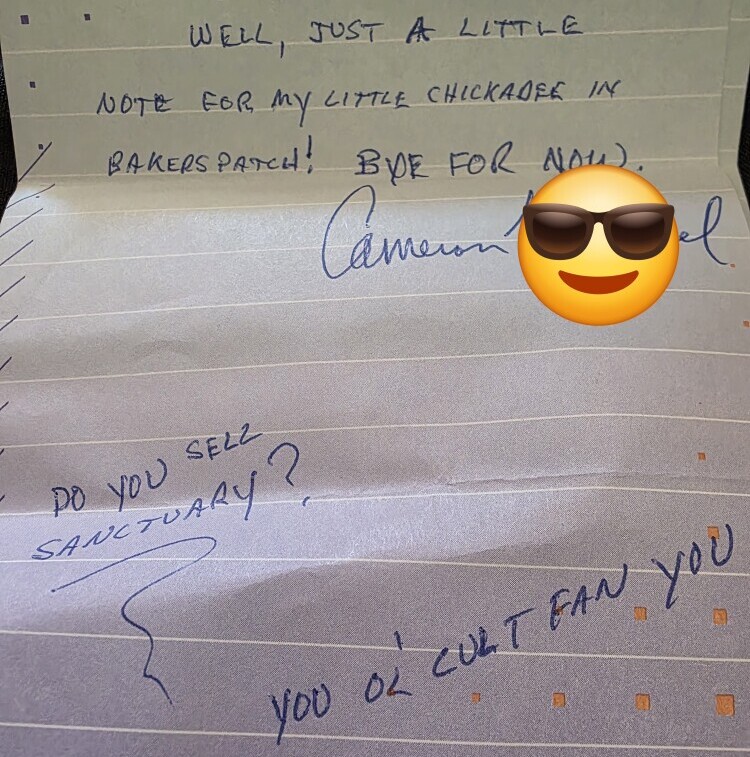 WELL, JUST A LITTLE
NOTE FOR MY LITTLE CHICKADEE IN
BAKERSPATCH! BYE FOR NOW.
Cameron
DO YOU SELL
SANCTUARY?
YOU OL' CULT FAN YOU